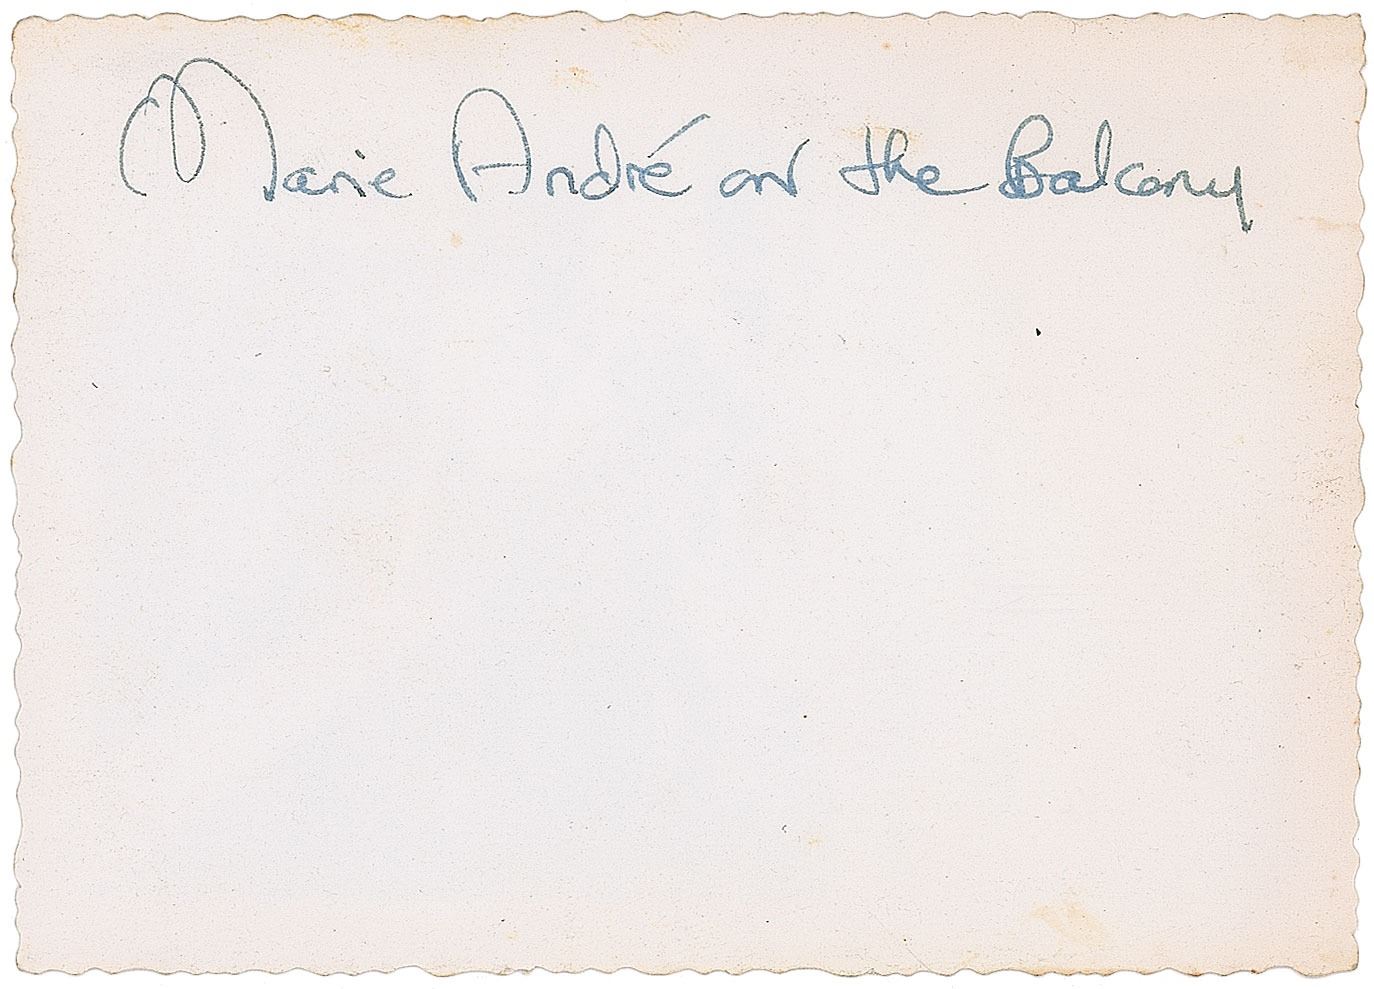 Marie André on the Balcony